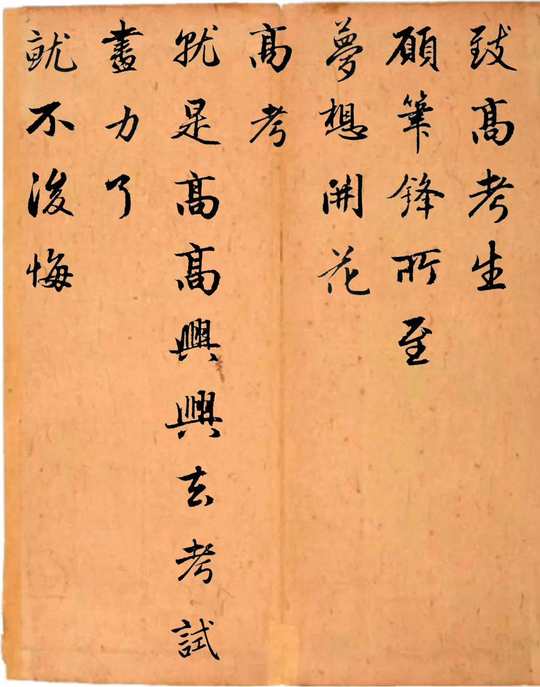 致高考生
願筆鋒所至
夢想開花
高考
就是高高興興去考試
盡力了
就不後悔